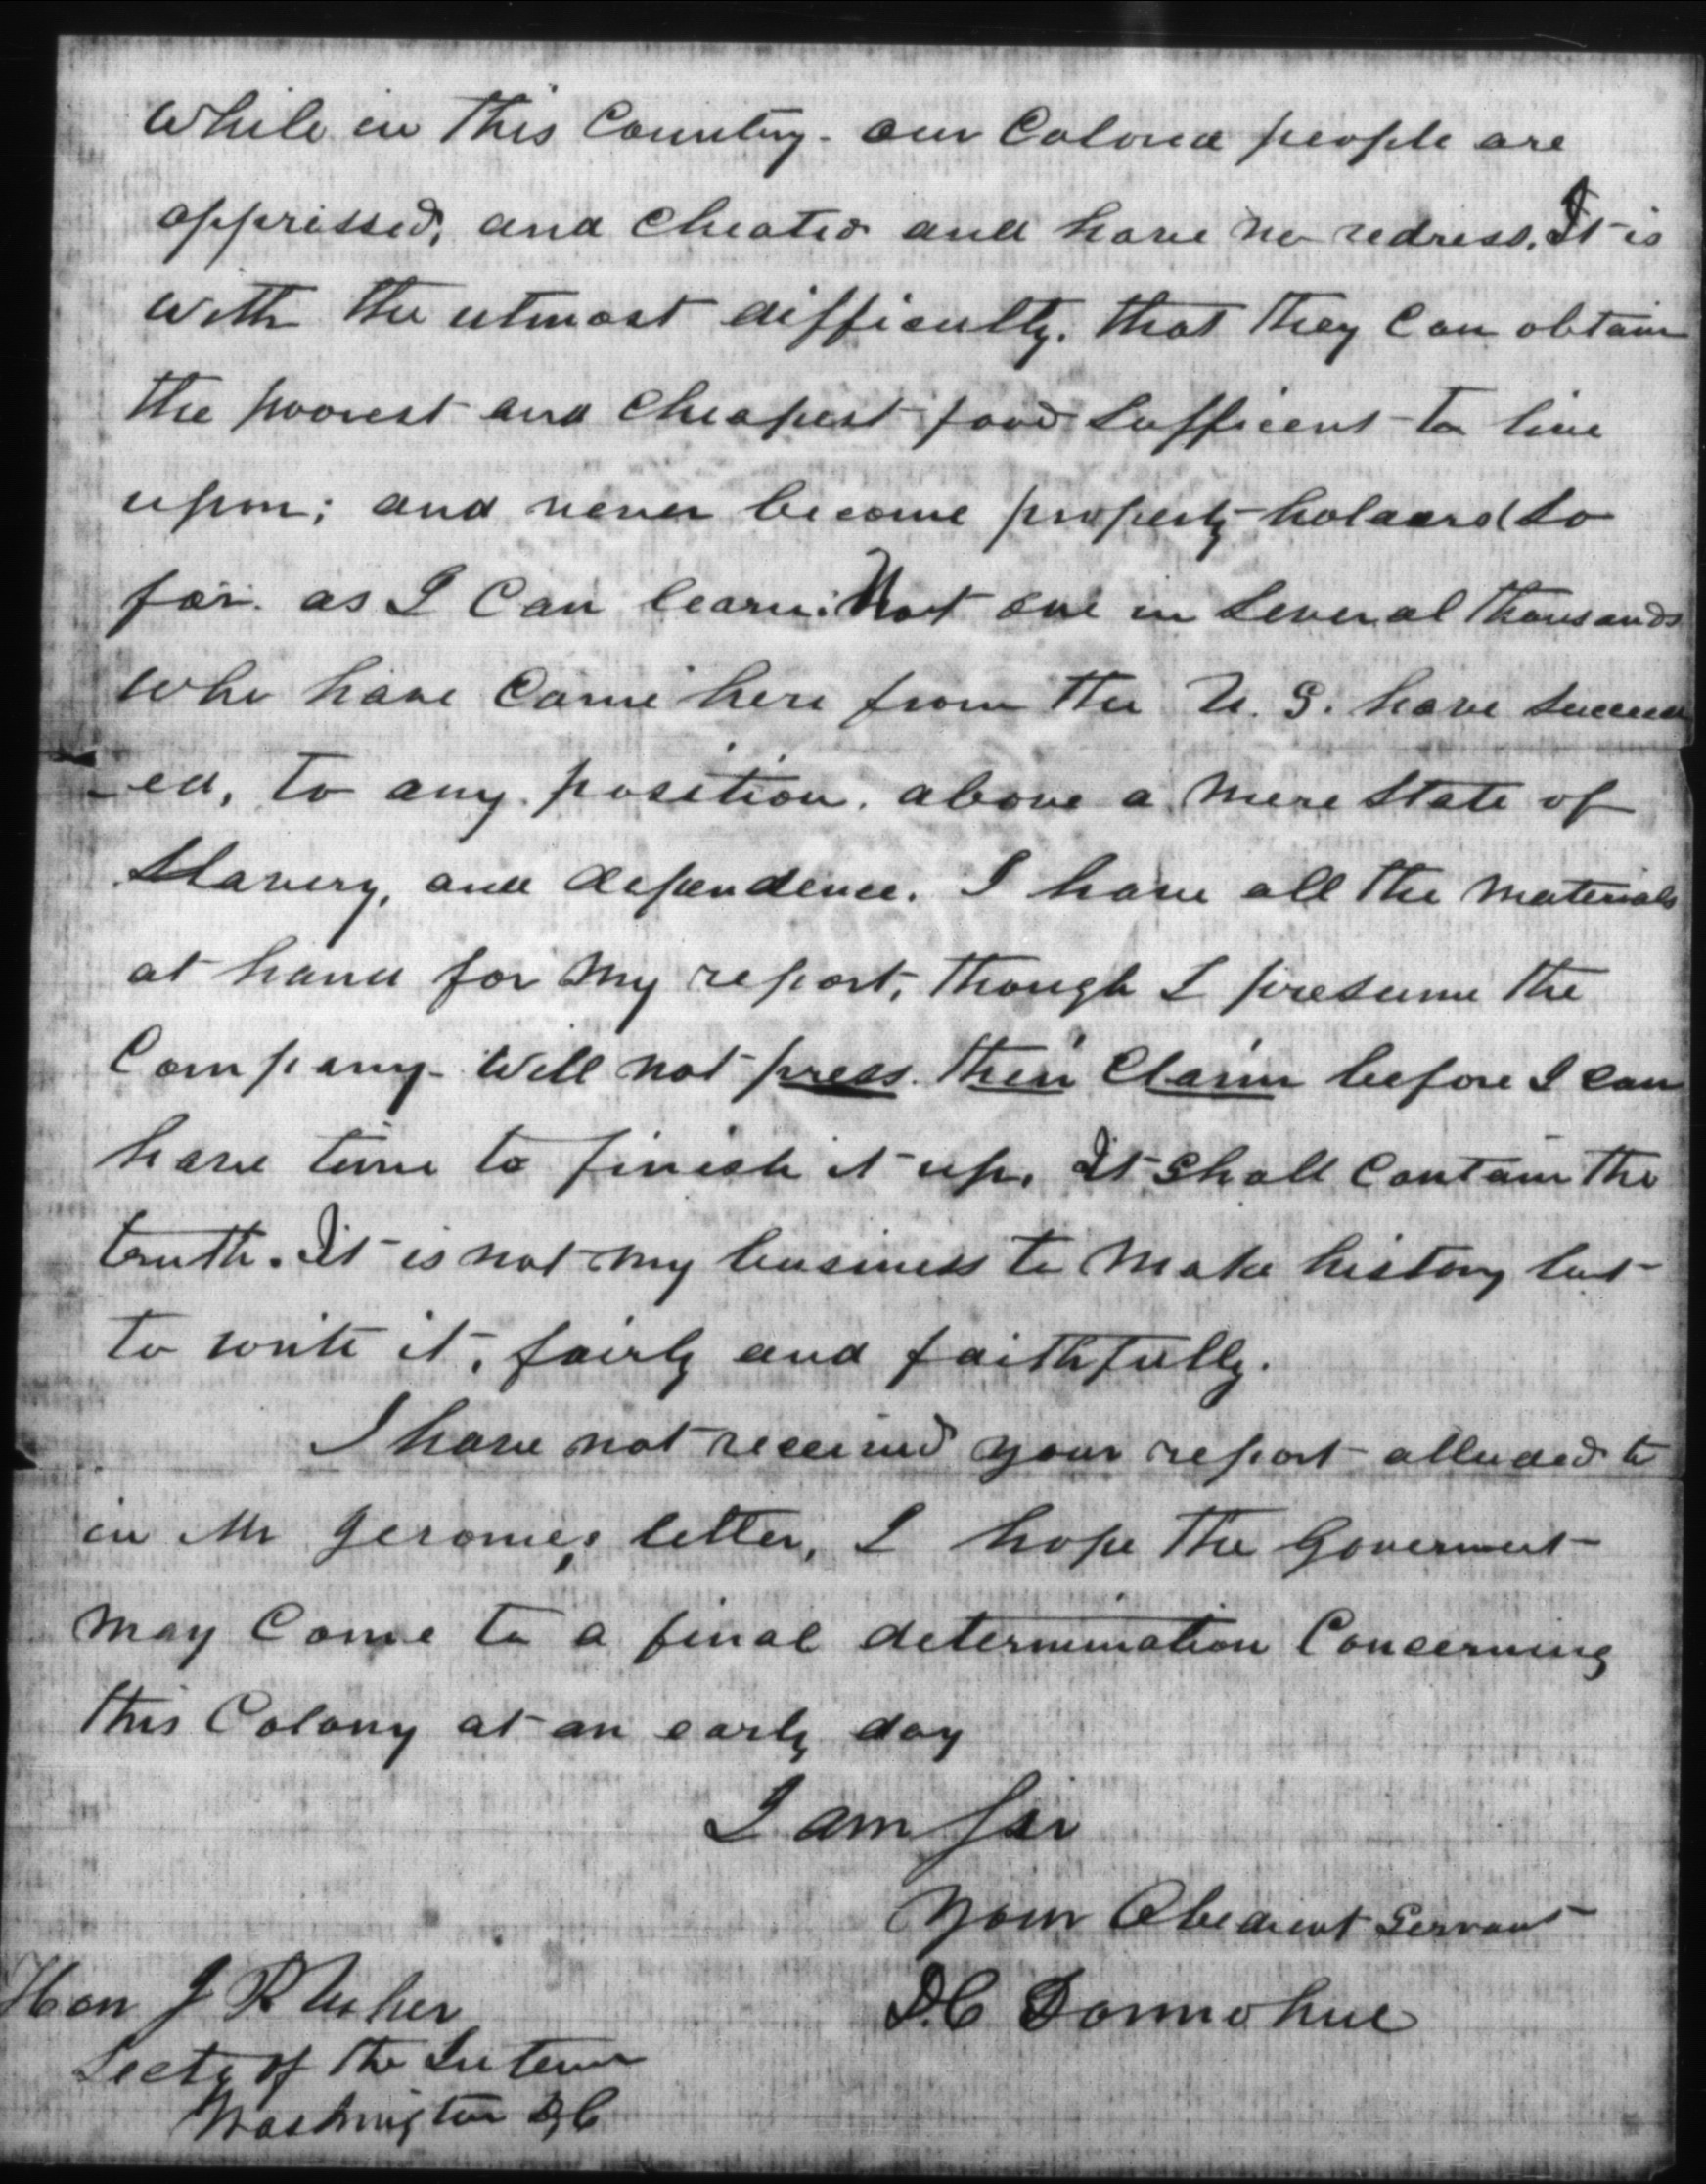 while in this Country - our Colored people are
oppressed, and cheated and have no redress. It is
with the utmost difficulty, that they Can obtain
the poorest and cheapest food sufficent to live
upon; and never become property holders (so
far as I Can learn: Not one in several thousands
who have Come here from the U. S. have succeed
-ed, to any position, above a mere state of
slavery, and dependence. I have all the materials
at hand for my report, though I presume the
Company will not press their Claim before I can
have time to finish it up. It shall Contain the
truth. It is not my business to make history but
to write it, fairly and faithfully.
I have not received your report alluded to
in Mr Jeromes letter, I hope the Goverment
may Come to a final determination Concerning
this Colony at an early day
I am Sir
Your Obedient Servant
D.C Donnohue
Hon J P Usher
Secty of the Interior
Washington D,C